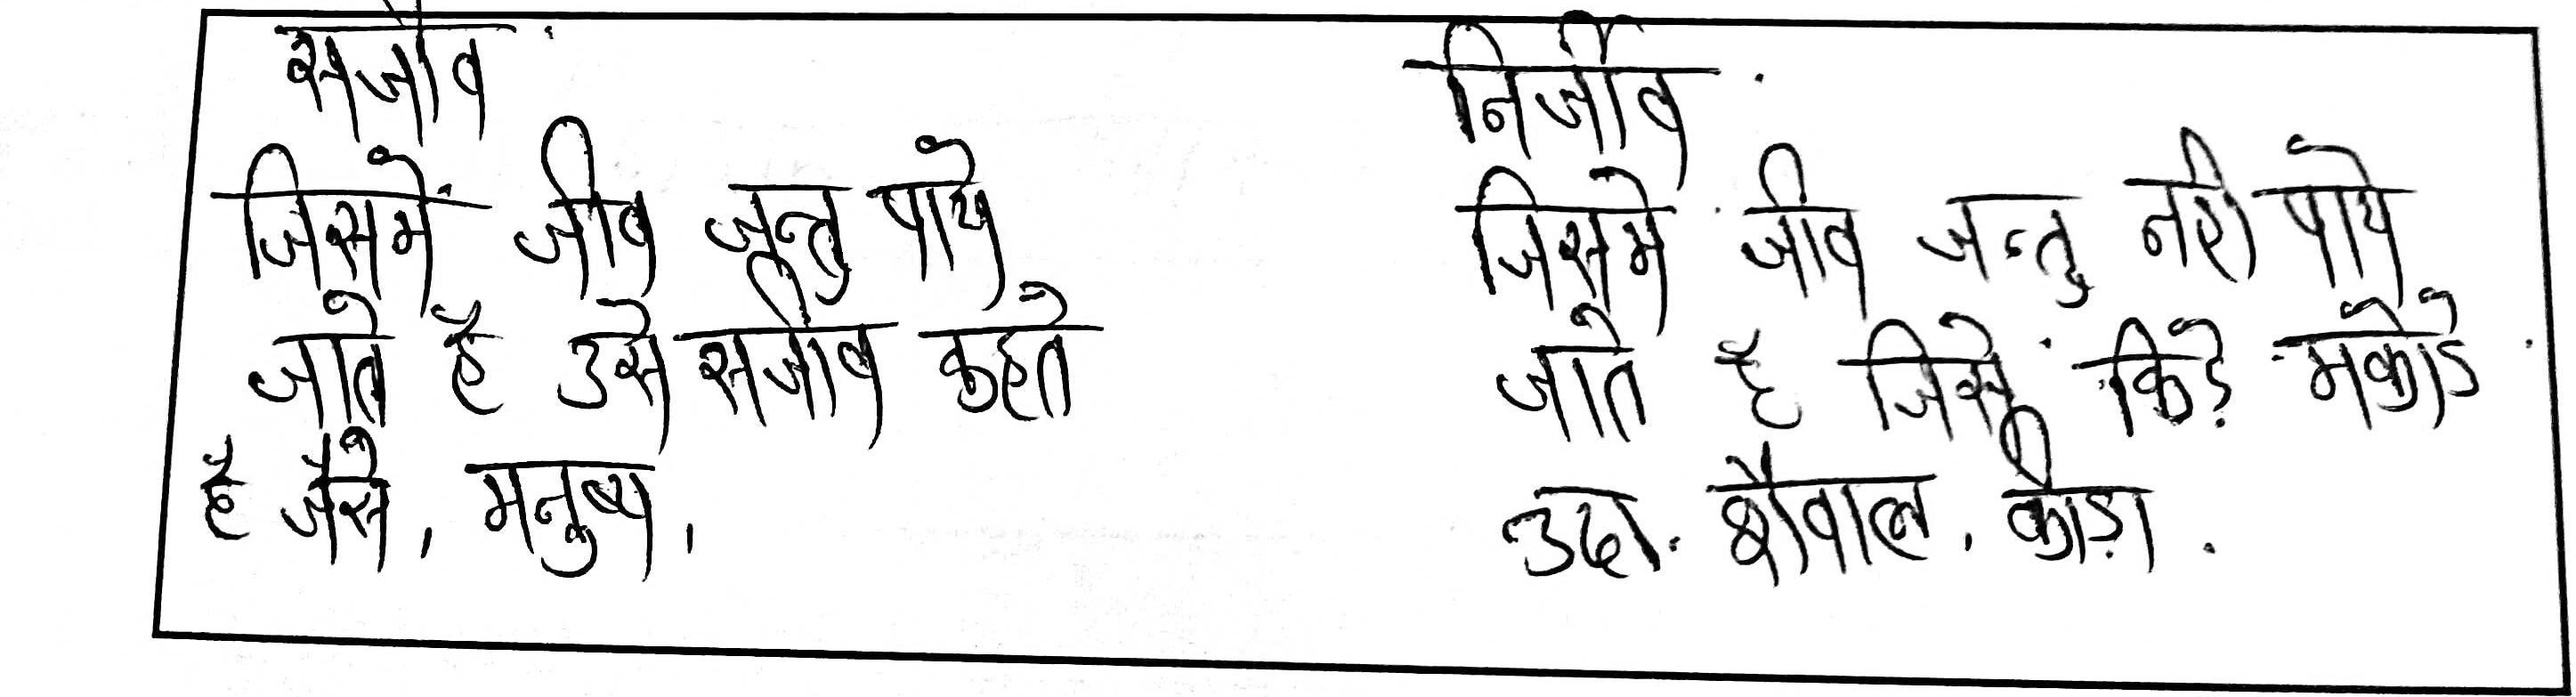 सजीव
जिसमें जीव जन्तु पाये
जाते है उसे सजीव कहते
है जैसे, मनुष्य,
निर्जीव
जिसमे जीव जन्तु नही पाये
जाते है जिसे किड़े मकोडे
उदा. शैवाल, कीड़ा.